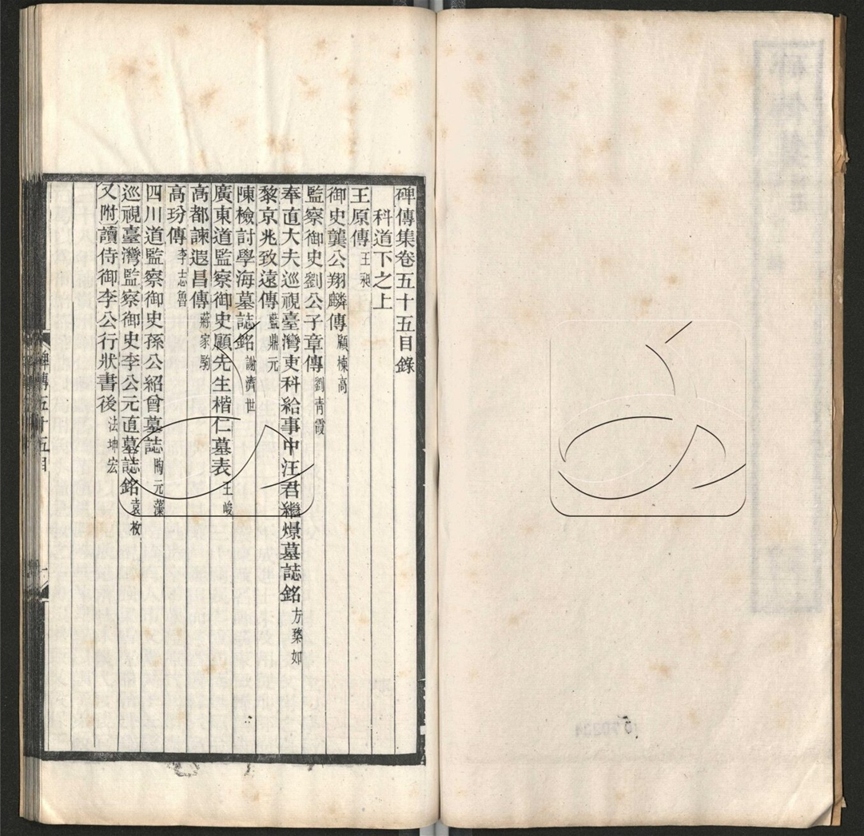 碑傳集卷五十五目錄
科道下之上
王原傳 王昶
御史龔公翔麟傳 顧棟高
監察御史劉公子章傳 劉青霞
奉直大夫巡視臺灣吏科給事中汪君繼燝墓誌銘 方楘如
黎京兆致遠傳 藍鼎元
陳檢討學海墓誌銘 謝濟世
廣東道監察御史顧先生楷仁墓表 王峻
高都諫遐昌傳 蔣家駒
高玢傳 李志魯
四川道監察御史孫公紹曾墓誌 陶元藻
巡視臺灣監察御史李公元直墓誌銘 袁枚
又附讀侍御李公行狀書後 法坤宏
碑傳五十五目
一